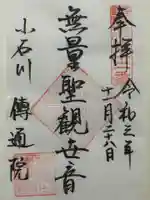 奉拝
令和三年
十一月二十八日
無量聖観世音
小石川
傳通院